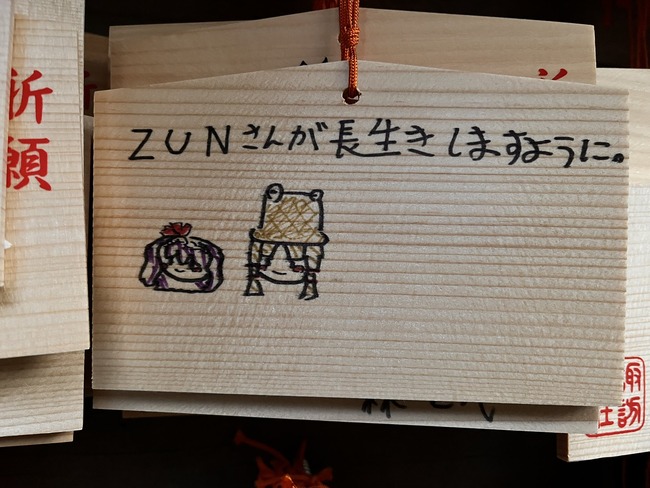 ZUNさんが長生きしますように。
祈願
諏訪
社